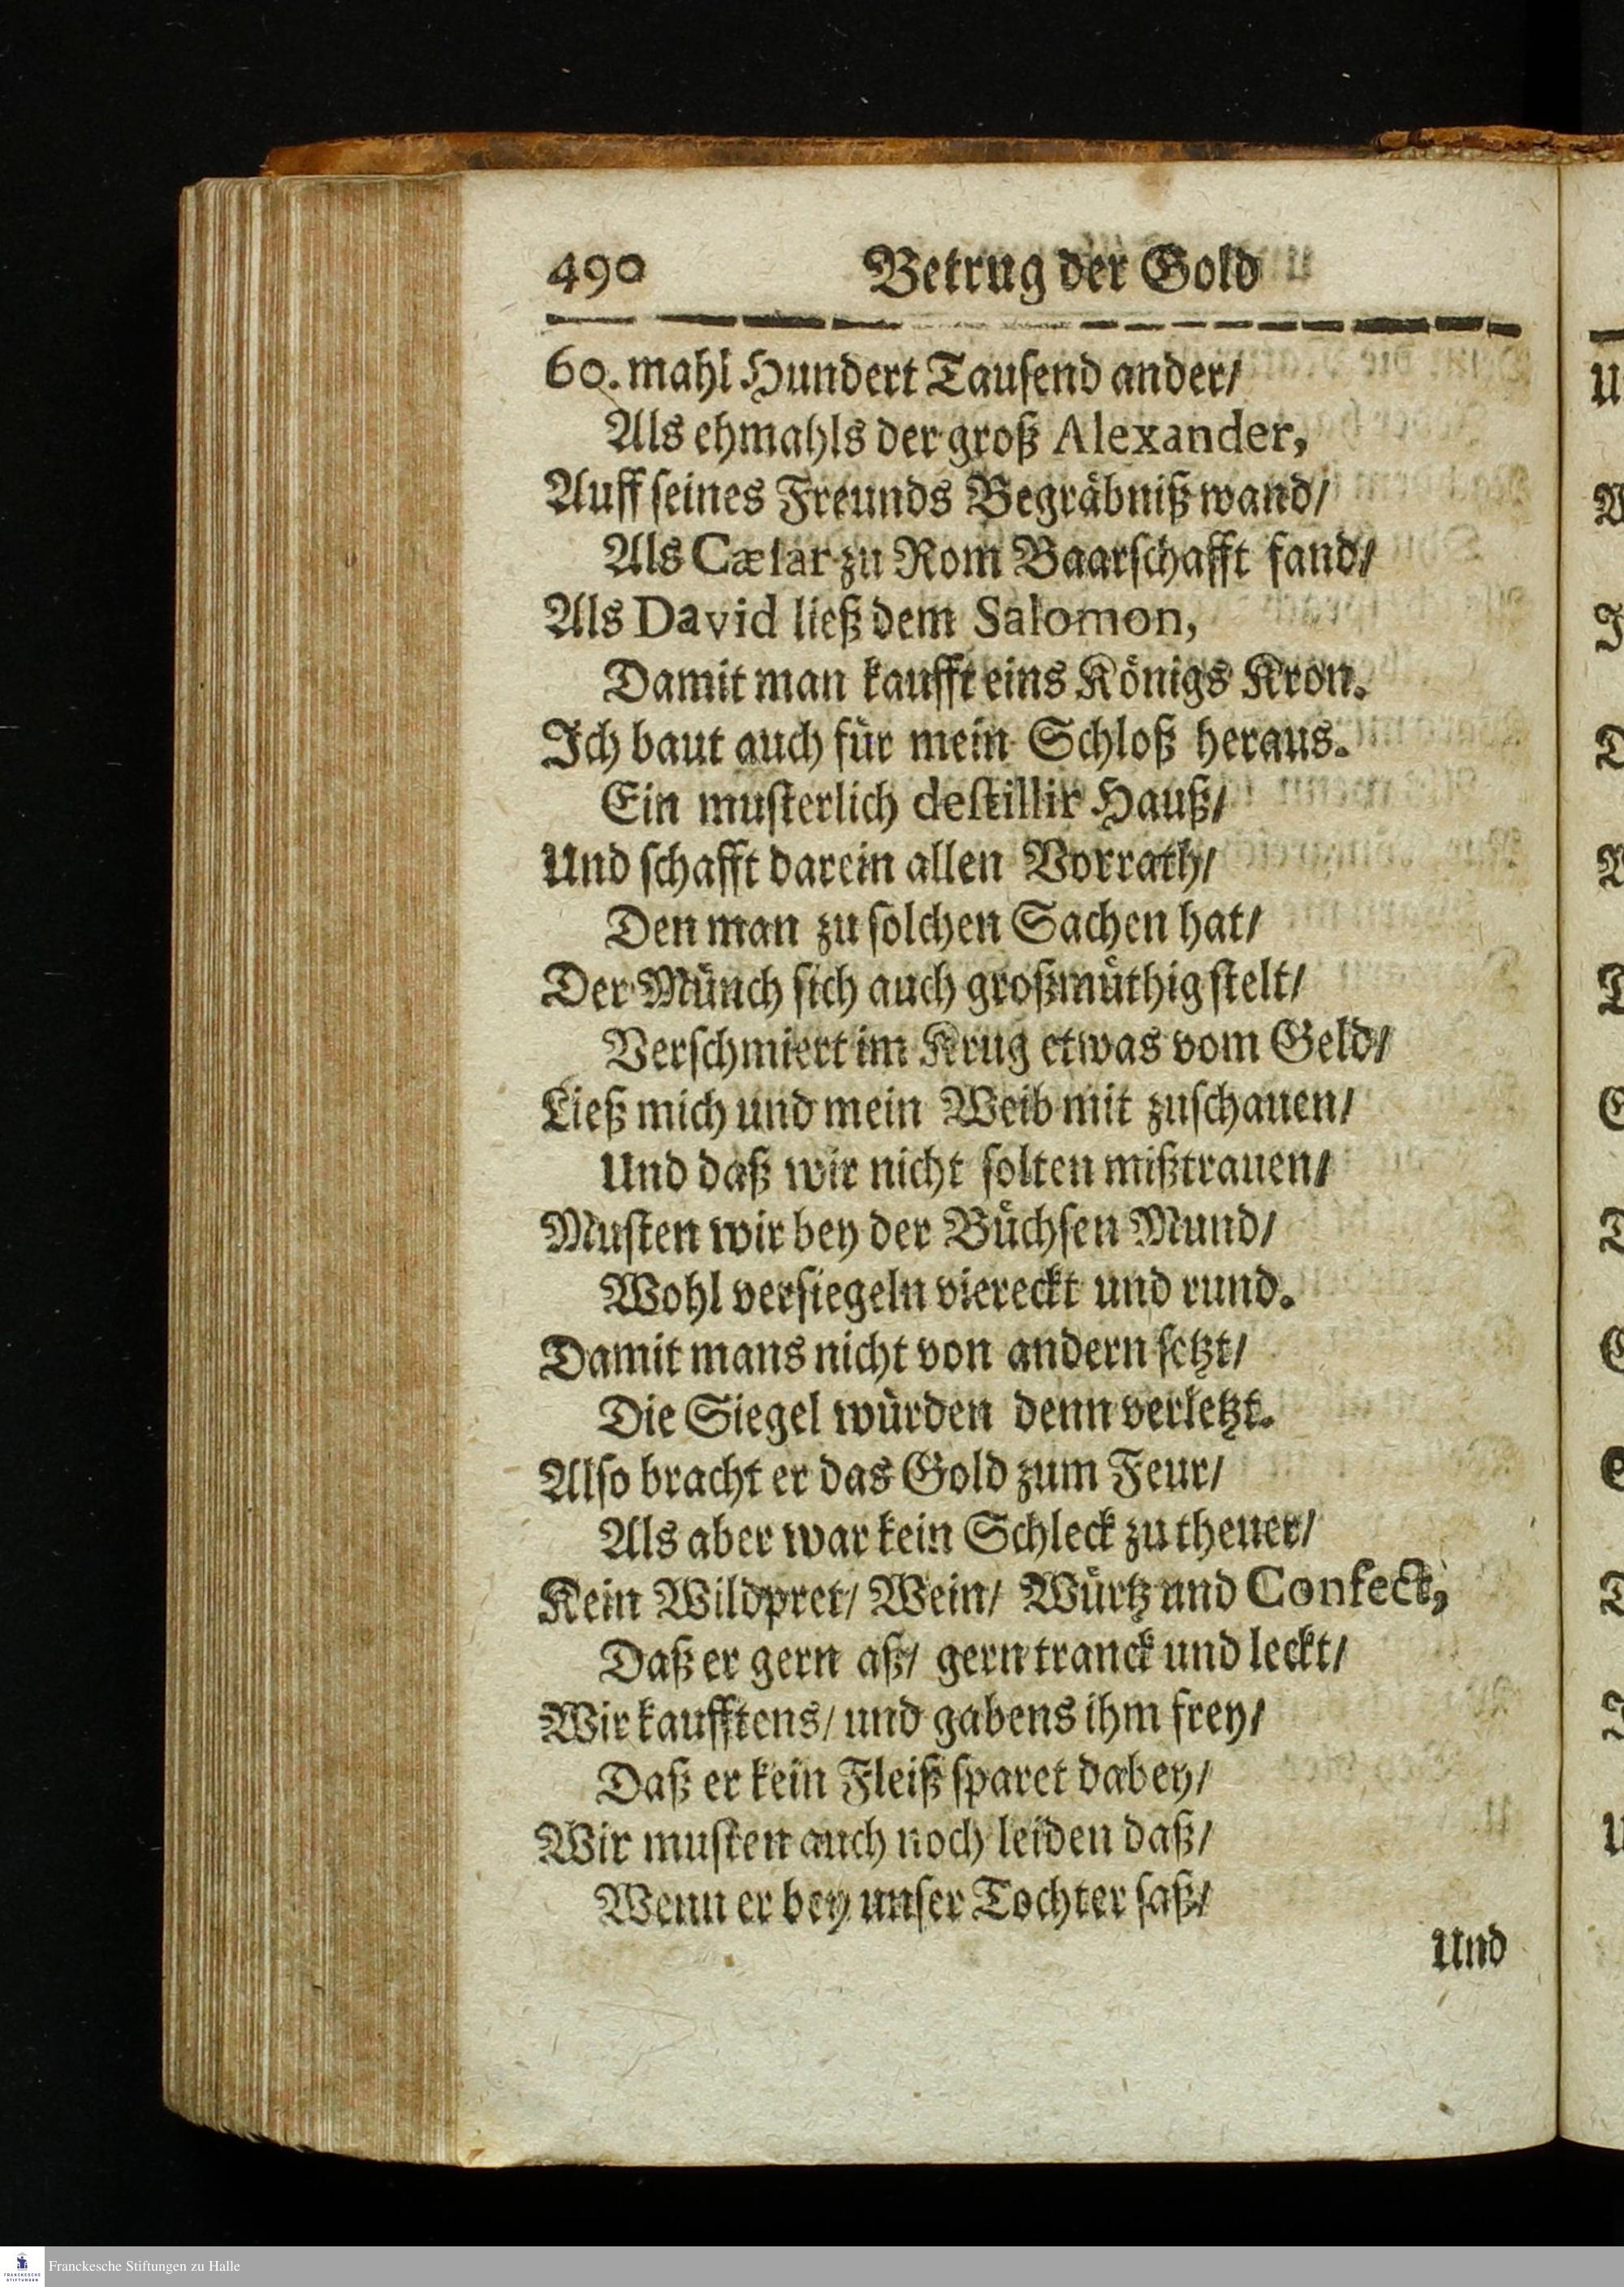 490 Betrug der Gold
60. mahl Hundert Tauſend ander/
Als ehmahls der groß Alexander,
Auff ſeines Freunds Begräbniß wand/
Als Cæſar zu Rom Baarſchafft fand/
Als David ließ dem Salomon,
Damit man kaufft eins Königs Kron.
Ich baut auch für mein Schloß heraus.
Ein muſterlich deſtillir Hauß/
Und ſchafft darein allen Vorrath/
Den man zu ſolchen Sachen hat/
Der Münch ſich auch großmüthig ſtelt/
Verſchmiert im Krug etwas vom Geld/
Ließ mich und mein Weib mit zuſchauen/
Und daß wir nicht ſolten mißtrauen/
Muſten wir bey der Büchſen Mund/
Wohl verſiegeln viereckt und rund.
Damit mans nicht von andern ſetzt/
Die Siegel würden denn verletzt.
Alſo bracht er das Gold zum Feur/
Als aber war kein Schleck zu theuer/
Kein Wildpret/ Wein/ Würtz und Confect,
Daß er gern aß/ gern tranck und leckt/
Wir kaufftens/ und gabens ihm frey/
Daß er kein Fleiß ſparet dabey/
Wir muſten auch noch leiden daß/
Wenn er bey unſer Tochter ſaß/
Und
Franckesche Stiftungen zu Halle